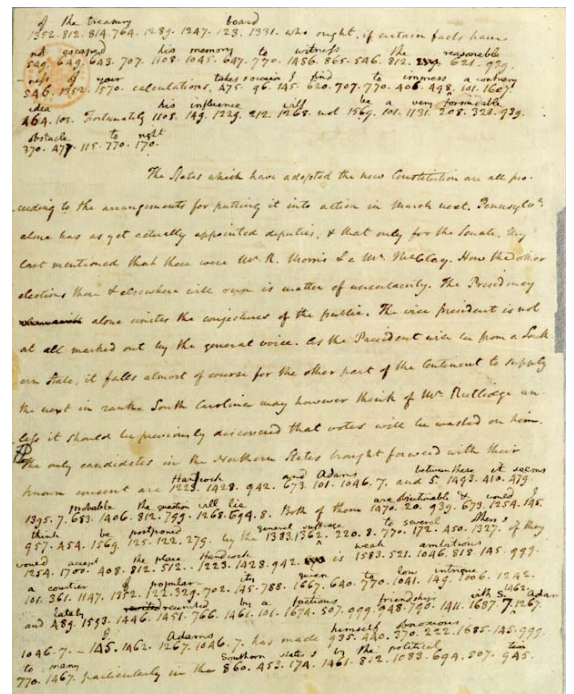 of the treasury board
1352. 812. 814. 764. 1289. 1247. 123. 1331. who ought, if certain facts have
not escaped his memory to witness the reasonable
540. 649. 643. 707. 1108. 1045. 647. 770. 1486. 865. 546. 812. 621. 939.
ness of your takes occasion I find to impress a contrary
546. 1352. 1570. calculations, 475. 96. 145. 620. 707. 770. 406. 498. 101. 1607.
idea his influence will be a very formidable
464. 102. Fortunately 1108. 149. 1229. 212. 1268. not 1569. 101. 1131. 208. 328. 939.
obstacle to right
370. 477. 115. 770. 170.
The States which have adopted the new Constitution are all pro-
ceeding to the arrangements for putting it into action in March next. Pennsylva
alone has as yet actually appointed deputies, & that only for the Senate. My
last mentioned that these were Mr. R. Morris & a Mr. McClay. How the other
elections there & elsewhere will run is matter of uncertainty. The Presidency
alone unites the conjectures of the public. The vice president is not
at all marked out by the general voice. As the President will be from a South-
ern State, it falls almost of course for the other part of the Continent to supply
the next in rank. South Carolina may however think of Mr. Rutledge un-
less it should be previously discovered that votes will be wasted on him.
The only candidates in the Northern States brought forward with their
Hancock and Adams between these it seems
known consent are 1223. 1428. 942. 673. 101. 1046. 7. and 5. 1493. 410. 479.
probable the question will lie are objectionable & would I
1395. 7. 683. 1406. 812. 799. 1268. 694. 8. Both of them 1470. 20. 939. 673. 1254. 145.
think be postponed general suffrage to several others if
957. 454. 1569. 125. 122. 279. by the 1383. 1362. 220. 8. 770. 172. 450. 1327. if they
would accept the place Hancock weak ambitious
1254. 1700. 408. 812. 512. 1223. 1428. 942. is 1583. 521. 1046. 818. 145. 999.
a courtier of popularity given to low intrigue
101. 361. 1147. 1352. 122. 329. 702. 145. 788. 1667. 640. 770. 1041. 149. 1006. 1242.
lately reunited by a factious friendship with S. Adams
and 489. 1593. 1446. 1451. 766. 1461. 101. 1674. 507. 999. 948. 790. 1411. 1687. 7. 1267.
J Adams himself obnoxious
1046. 7. - 145. 1462. 1267. 1046. 7. has made 935. 440. 370. 222. 1685. 145. 999.
to many Southern states by the political
770. 1467. particularly in the 860. 453. 174. 1461. 812. 1083. 694. 507. 945.